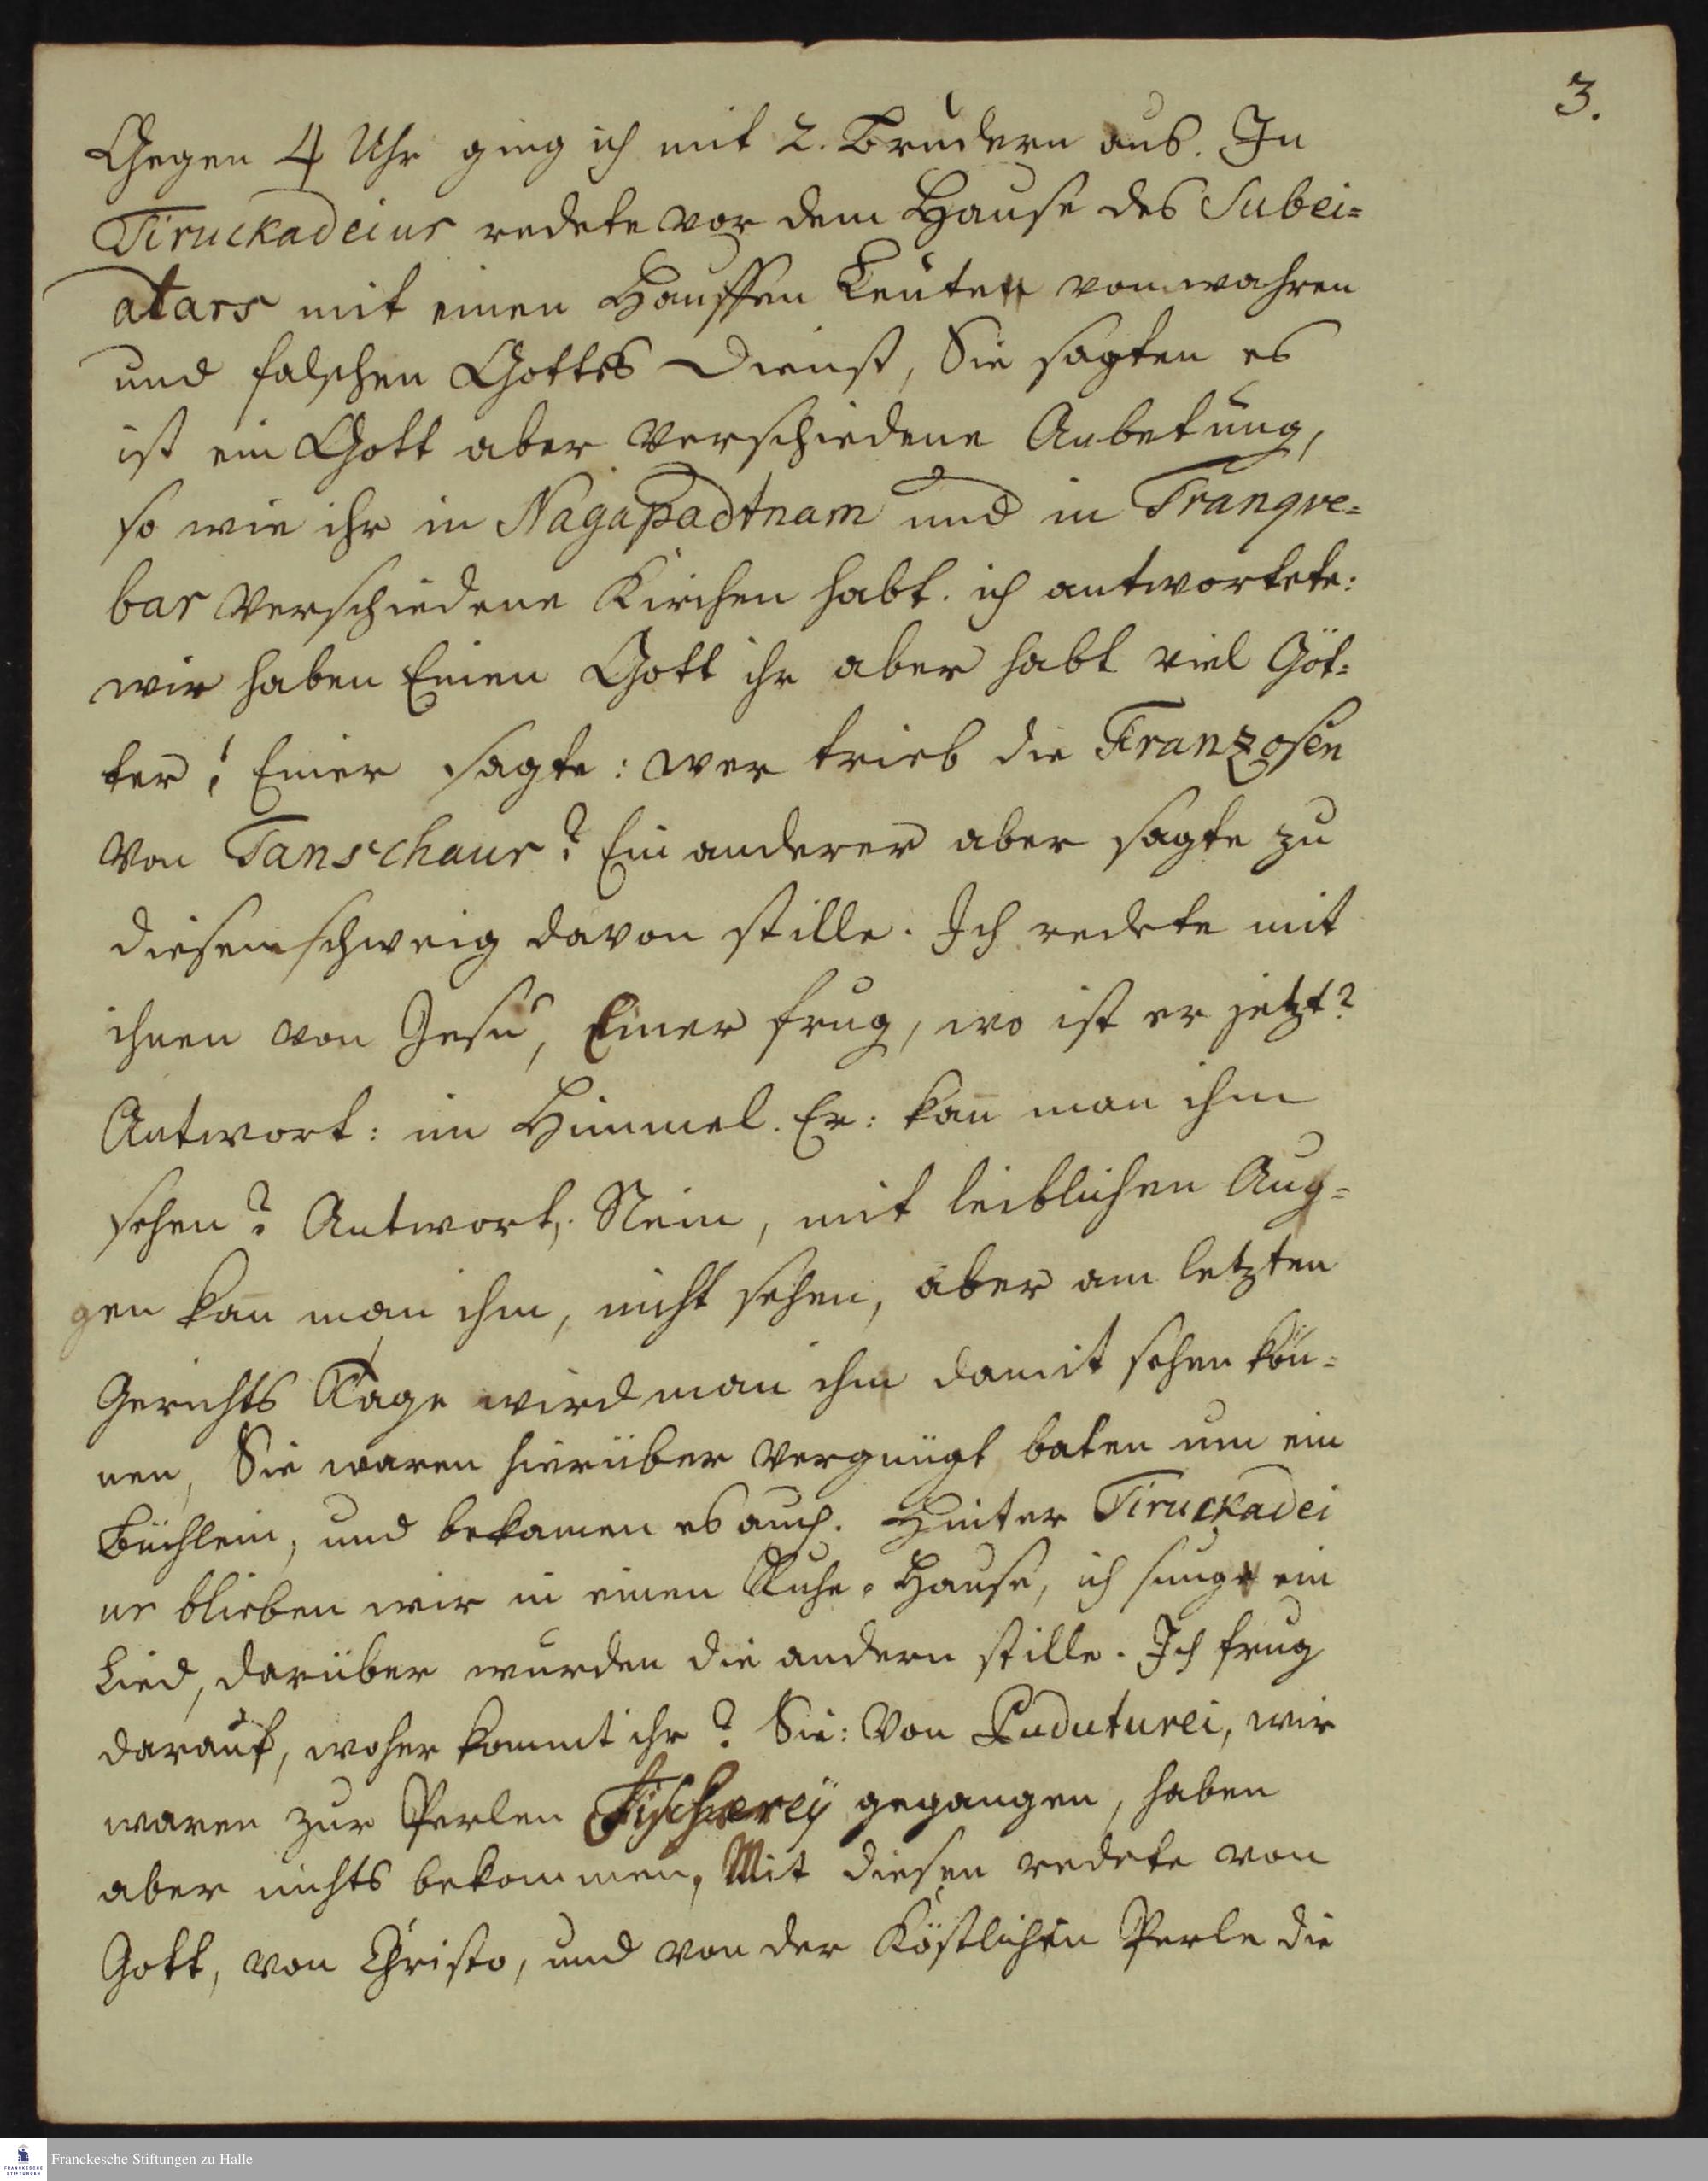 3.
Gegen 4 Uhr ging ich mit 2. Brüdern aus. In
Tiruckadeiur redete vor dem Hause des Subei=
atars mit einen Hauffen Leuten vom wahren
und falschen Gottes Dienst, Sie sagten es
ist ein Gott aber verschiedene Anbetung,
so wie ihr in Nagapadtnam und in Tranqve=
bar verschiedene Kirchen habt. ich antwortete:
wir haben Einen Gott ihr aber habt viel Göt=
ter! Einer sagte: wer trieb die Franzosen
von Tanschaur? Ein anderer aber sagte zu
diesem schweig davon stille. Ich redete mit
ihnen von Jesu, Einer frug, wo ist er jetzt?
Antwort: im Himmel. Er: kan̄ man ihm
sehen? Antwort. Nein, mit leiblichen Aug=
gen kan̄ man ihm, nicht sehen, aber am letzten
Gerichts Tage wird man ihm damit sehen kön=
nen, Sie waren hierüber vergnügt baten um ein
Büchlein, und bekamen es auch. Hinter Tiruckadei
ur blieben wir in einen Ruhe=Hause, ich sung ein
Lied, darüber wurden die andern stille. Ich frug
darauf, woher kommt ihr? Sie: Von Puduturei, wir
waren zur Perlen Fischerey gegangen, haben
aber nichts bekommen, Mit diesen redete von
Gott, von Christo, und von der Köstlichen Perle die
FRANCKESCHE STIFTUNGEN
Franckesche Stiftungen zu Halle